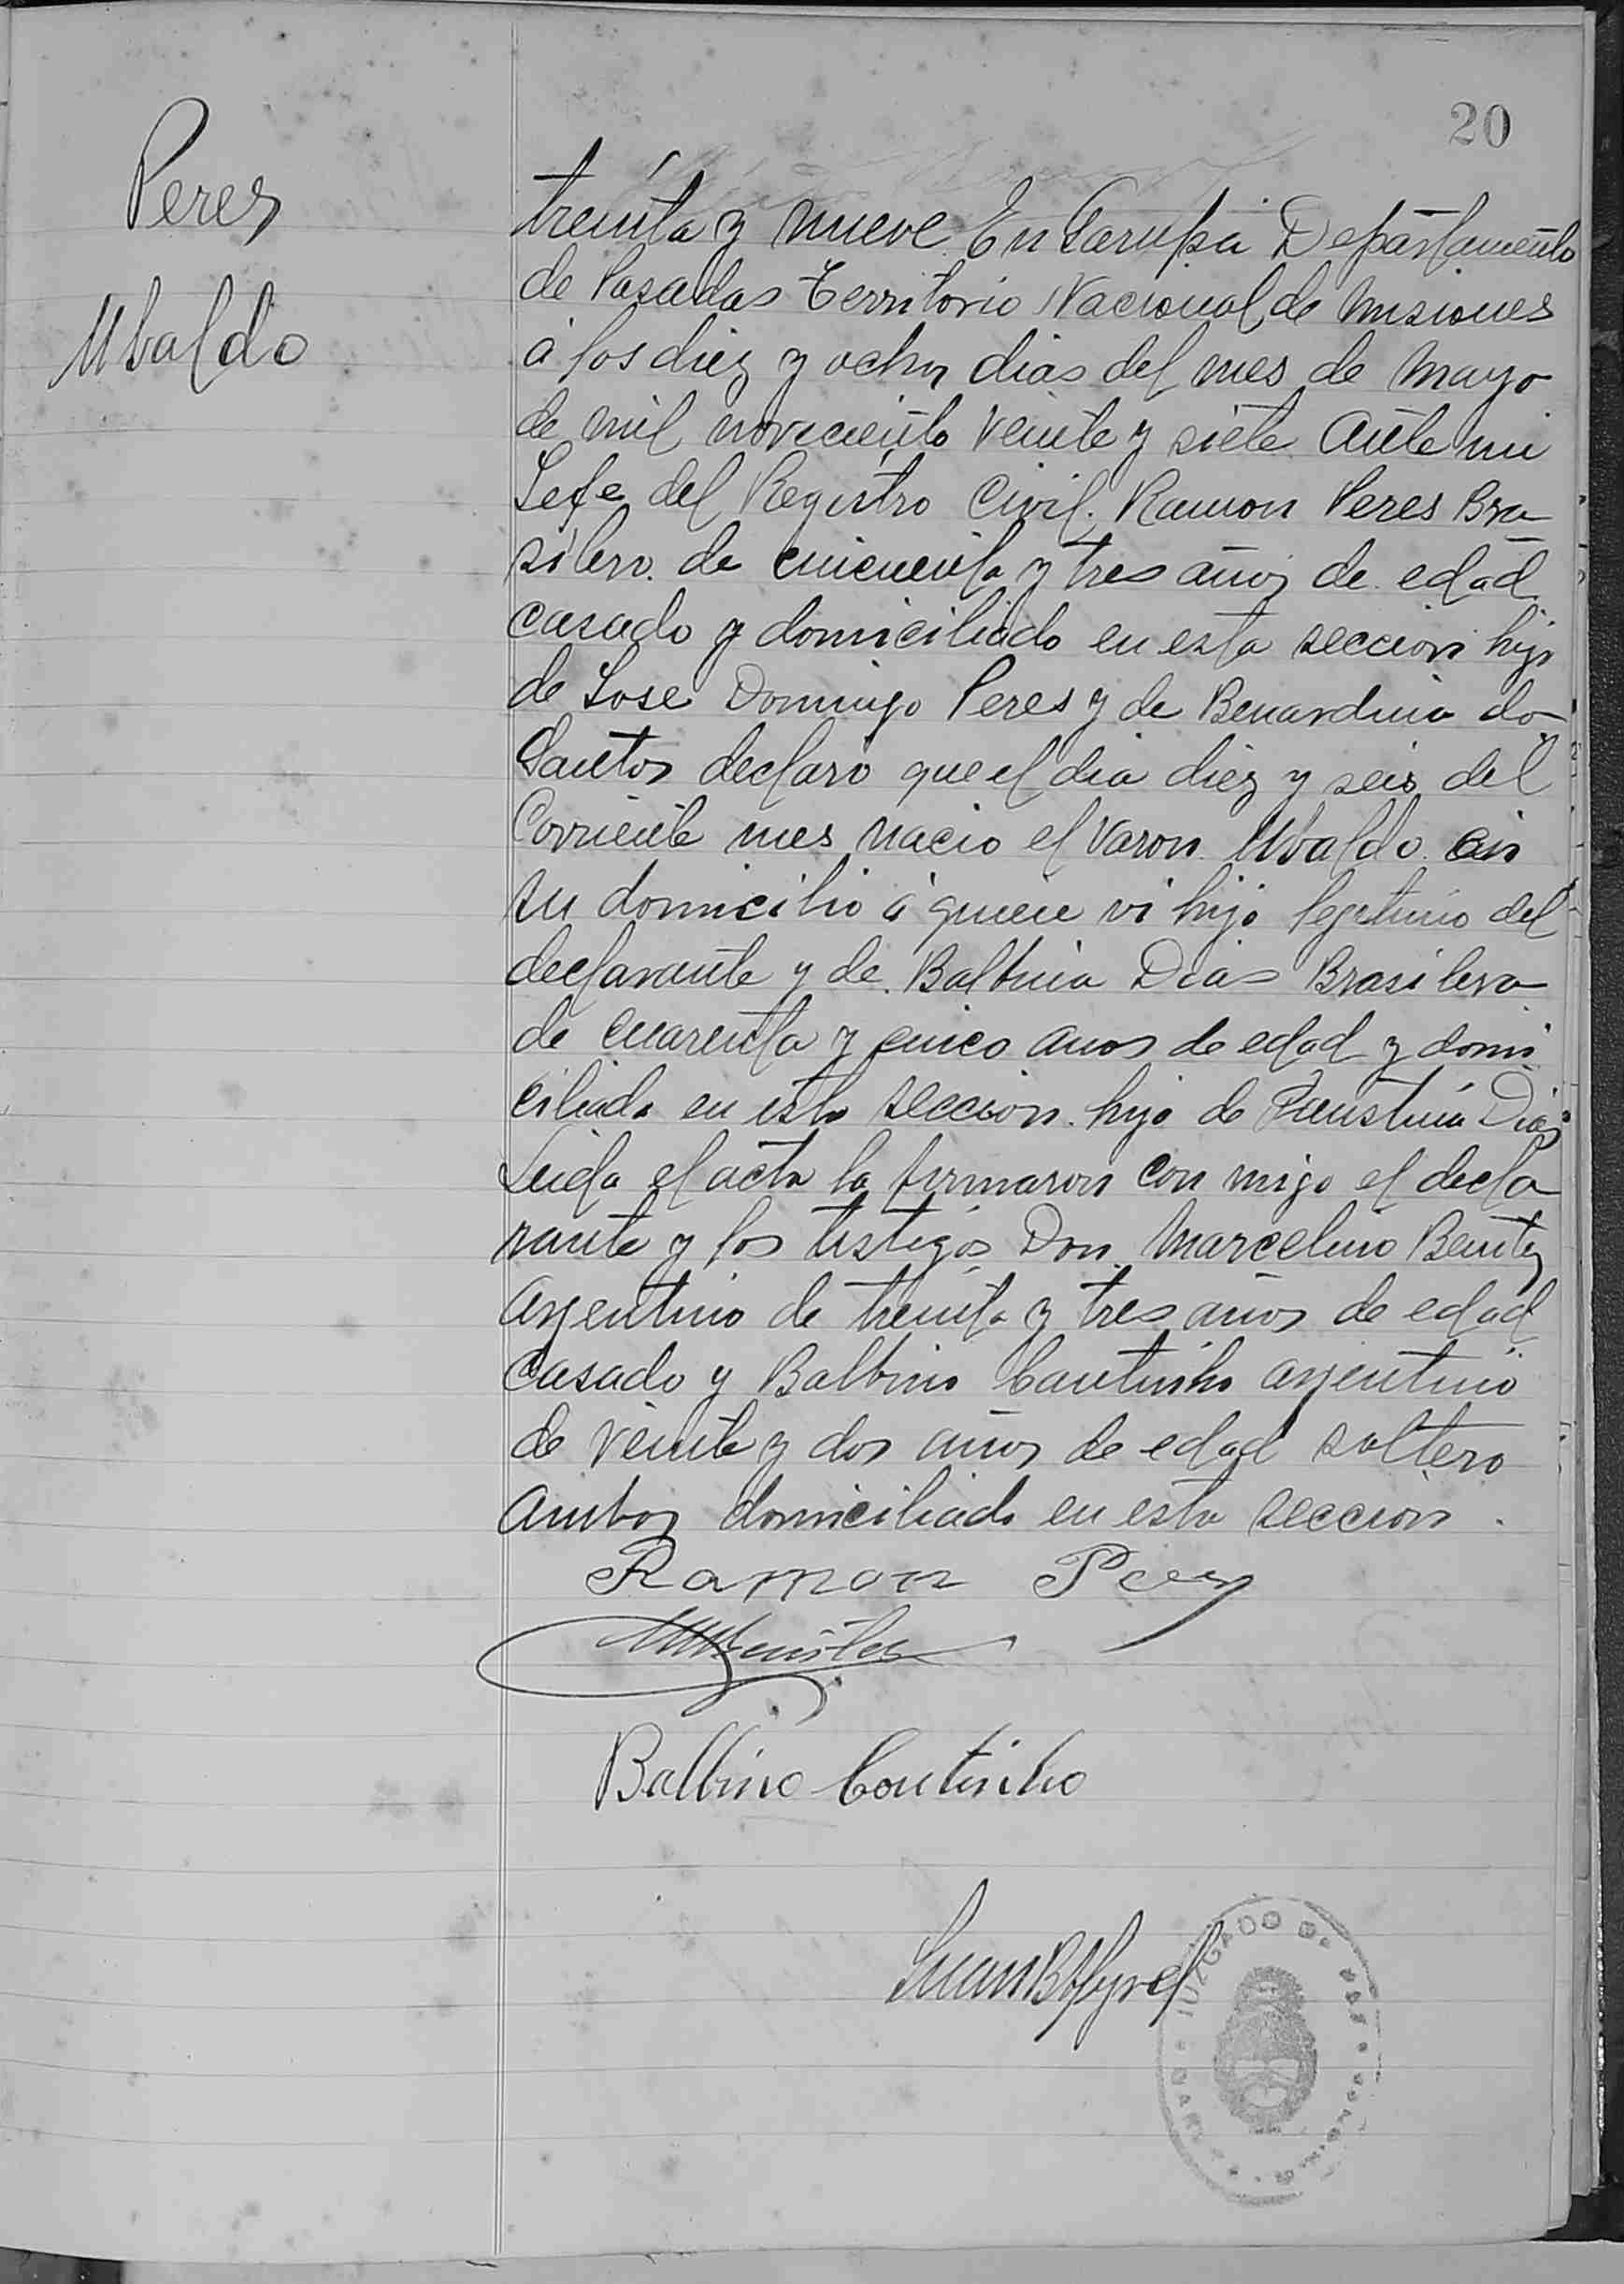 20
Peres
Ubaldo
treinta y nueve En Garupa Departamento
de Posadas Territorio Nacional de Misiones
á los diez y ocho dias del mes de Mayo
de mil noveciento veinte y siete Ante mi
Jefe del Registro Civil. Ramon Peres Bra
silero. de cincuenta y tres años de edad
casado y domiciliado en esta seccion hijo
de Jose Domingo Peres y de Benardina do
Santos declaro que el dia diez y seis del
Corriente mes nacio el varon Ubaldo en
su domicilio á quien vi hijo legitimo del
declarante y de Balbina Dias Brasilera
de cuarenta y cinco anos de edad y domi
ciliada en esta seccion. hija de Faustina Dias
Leida el acta la firmaron con migo el decla
rante y los testigos Don Marcelino Benitez
argentino de treinta y tres años de edad
casado y Balbino Coutinho argentino
de veinte y dos años de edad soltero
Ambos domiciliado en esta seccion.
Ramon Perez
MBenitez
Balbino Coutinho
Juan B
JUZGADO DE PAZ